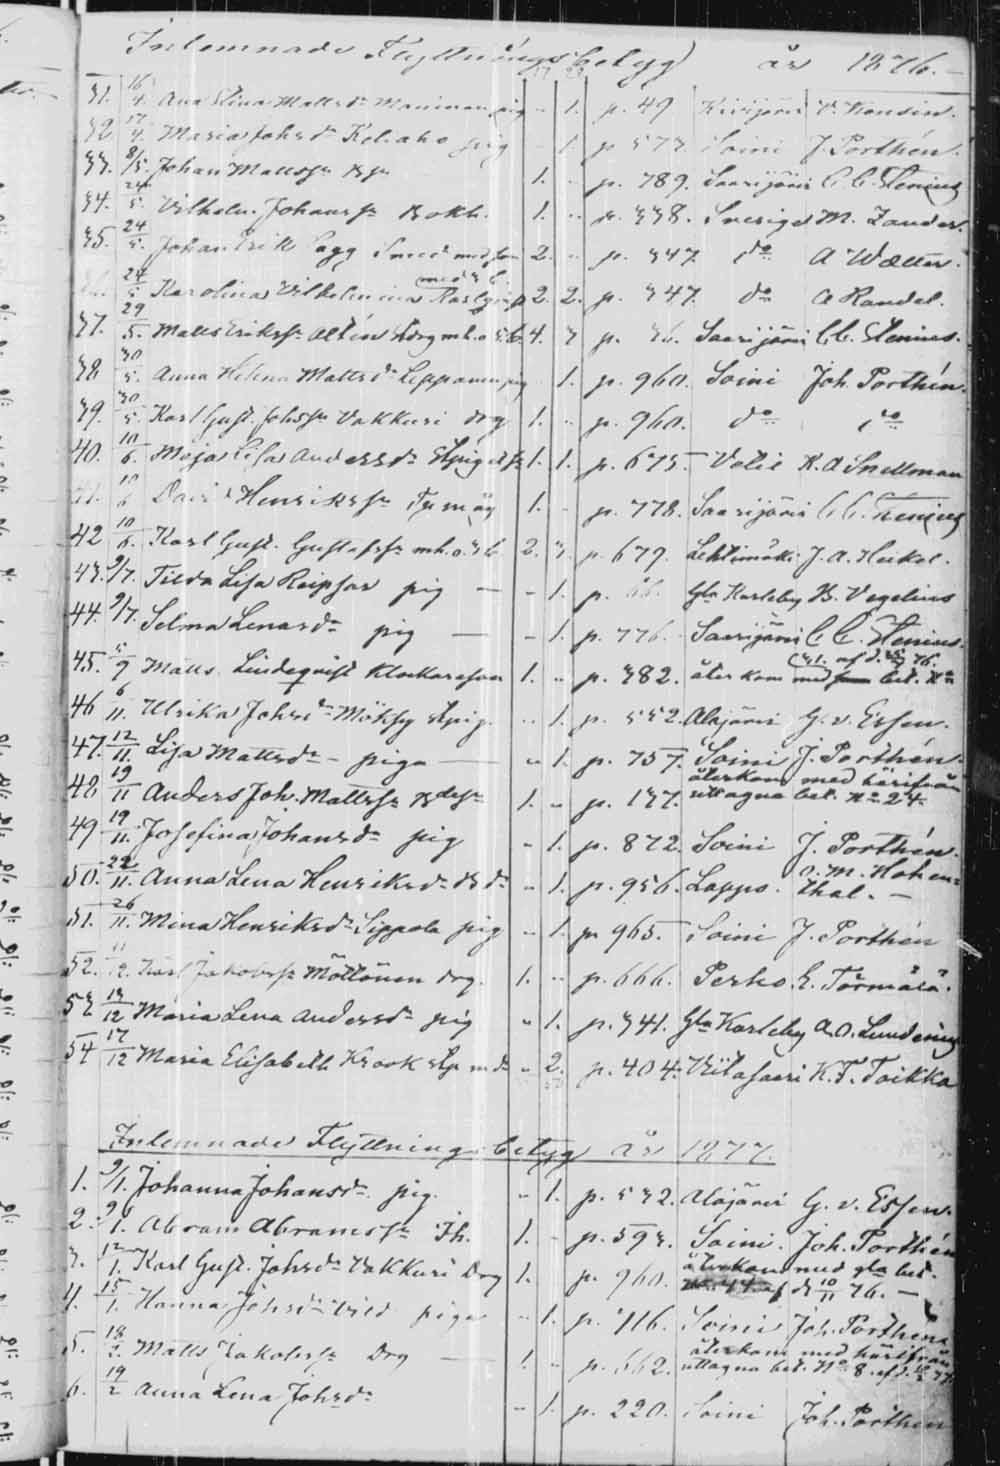 Inlemnade Flyttningsbetyg år 1876.
31. 16/4. Ana Stina Mattsdr Manninen pig - 1. p. 49 Kivijärvi
32 17/4. Maria Johsdr Kel.aho pig - 1 p 573. Soini J. Porthén.
33. 8/5. Johan Mattsn Bsn 1. - p. 789. Saarijärvi C. C. Stenius
34. 24/5. Vilhelm Johanssn Bokh. 1. - p. 338. Sverige M. Zander.
35. 24/5. Johan Erik Smed med fam 2. - p. 347. do A Wetter.
24/5 Karolina Vilhelmina med 3 b. 2. 2. p. 347. do A Randel.
37. 29/5. Matts Erikssn Altén drg mh. o 5 b. 4. 3 p. 36. Saarijärvi C. C. Stenius.
38 30/5. Anna Helena Mattsdr Leppänen pig 1. p. 960. Soini Joh. Porthén.
39. 30/5. Karl Gust. Johssn Vakkuri drg 1. - p. 960. do do
40. 10/6. Maja Lisa Andersdr 1. 1. p. 675. Vetil K. A Snellman
41. 10/6 David Henrikssn 1. - p. 778. Saarijärvi C. C. Stenius
42 10/6. Karl Gust. Gustafssn mh. o. 3 b. 2. 3. p. 679. Lehtimäki J. A. Heikel.
43. 9/7. Tilda Lisa Reipsar pig - 1. p. 66. Gla Karleby B. Vegelius
44. 9/7. Selma Lenasdr pig - 1. p. 776. Saarijärvi C. C. Stenius.
45. 5/9 Matts Lindeqvist Klockareson 1. - p. 382. åter kom med bet. No
46 6/11. Ulrika Johsdr Möksy pig. - 1. p. 552. Alajärvi G. v. Essen.
47. 12/11. Lisa Mattsdr - piga - 1. p. 757. Soini J. Porthén.
48 19/11 Anders Joh. Mattssn Bdesn 1. - p. 137. återkom med härifrån
uttagna bet. No 24.
49 19/11. Josefina Johansdr pig - 1. p. 872. Soini J. Porthén.
50. 22/11. Anna Lena Henriksdr Bdr - 1. p. 956. Lappo. O. M. Hohen=
thal. -
51. 26/11. Mina Henriksdr Sippola pig - 1. p. 965. Soini J. Porthén
52. 11/12. Karl Jakobssn Möttönen drg. 1. - p. 666. Perho. E. Törmälä.
53 13/12 Maria Lena Andersdr pig - 1. p. 341. Gla Karleby A. O. Lundenius
54 17/12 Maria Elisabeth Krook md. - 2. p. 404. Viitasaari K. F. Toikka
Inlemnade Flyttningsbetyg år 1877.
1. 9/1. Johanna Johansdr pig. - 1. p. 532. Alajärvi G. v. Essen.
2. 9/1. Abram Abramssn Ih. 1. - p. 593. Soini. Joh. Porthén
3. 12/1. Karl Gust. Johsn Vakkuri Drg 1. p. 960. återkom med gla bet.
No 44 af d 10/11 76. -
4. 15/1. Hanna Johsdr piga - 1. p. 116. Soini Joh. Porthén
5. 18/2. Matts Jakobssn Drg 1. - p. 662. återkom med härifrån
uttagna bet. No 8. af d.
6. 19/2 Anna Lena Johsdr - 1. p. 220. Soini Joh. Porthén